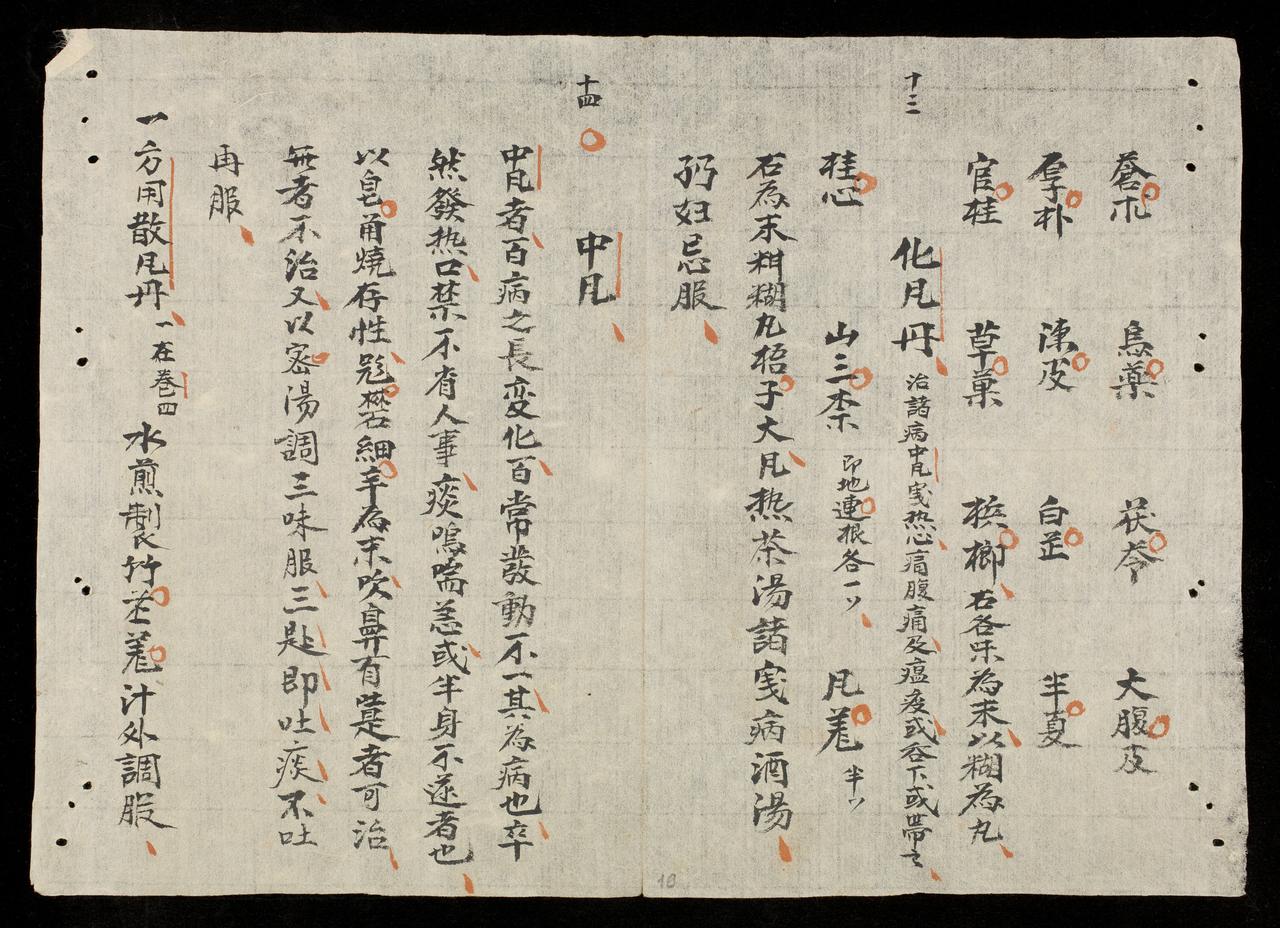 蒼朮 烏藥 茯苓 大腹皮
厚朴 陳皮 白芷 半夏
官桂 草菓 檳榔 右各味為末以糊為丸
十三
化凡丹 治諸病中凡寒热心痛腹痛及瘟疫或吞下或帶之
桂心 山三柰 即地連根各一ツ 凡羗 半ツ
右為末糊丸梧子大凡热茶湯諸寒病酒湯
妇忌服
十四
中凡
中凡者百病之長変化百常發動不一其為病也卒
然發热口禁不省人事痰嗚喘恙或半身不遂者也
以皂甬燒存性礬細辛為末吹鼻有嚏者可治
無者不治又以密湯調三味服三匙即吐痰不吐
再服
一方用散凡丹 一在巻四 水煎製竹羗汁外調服
10